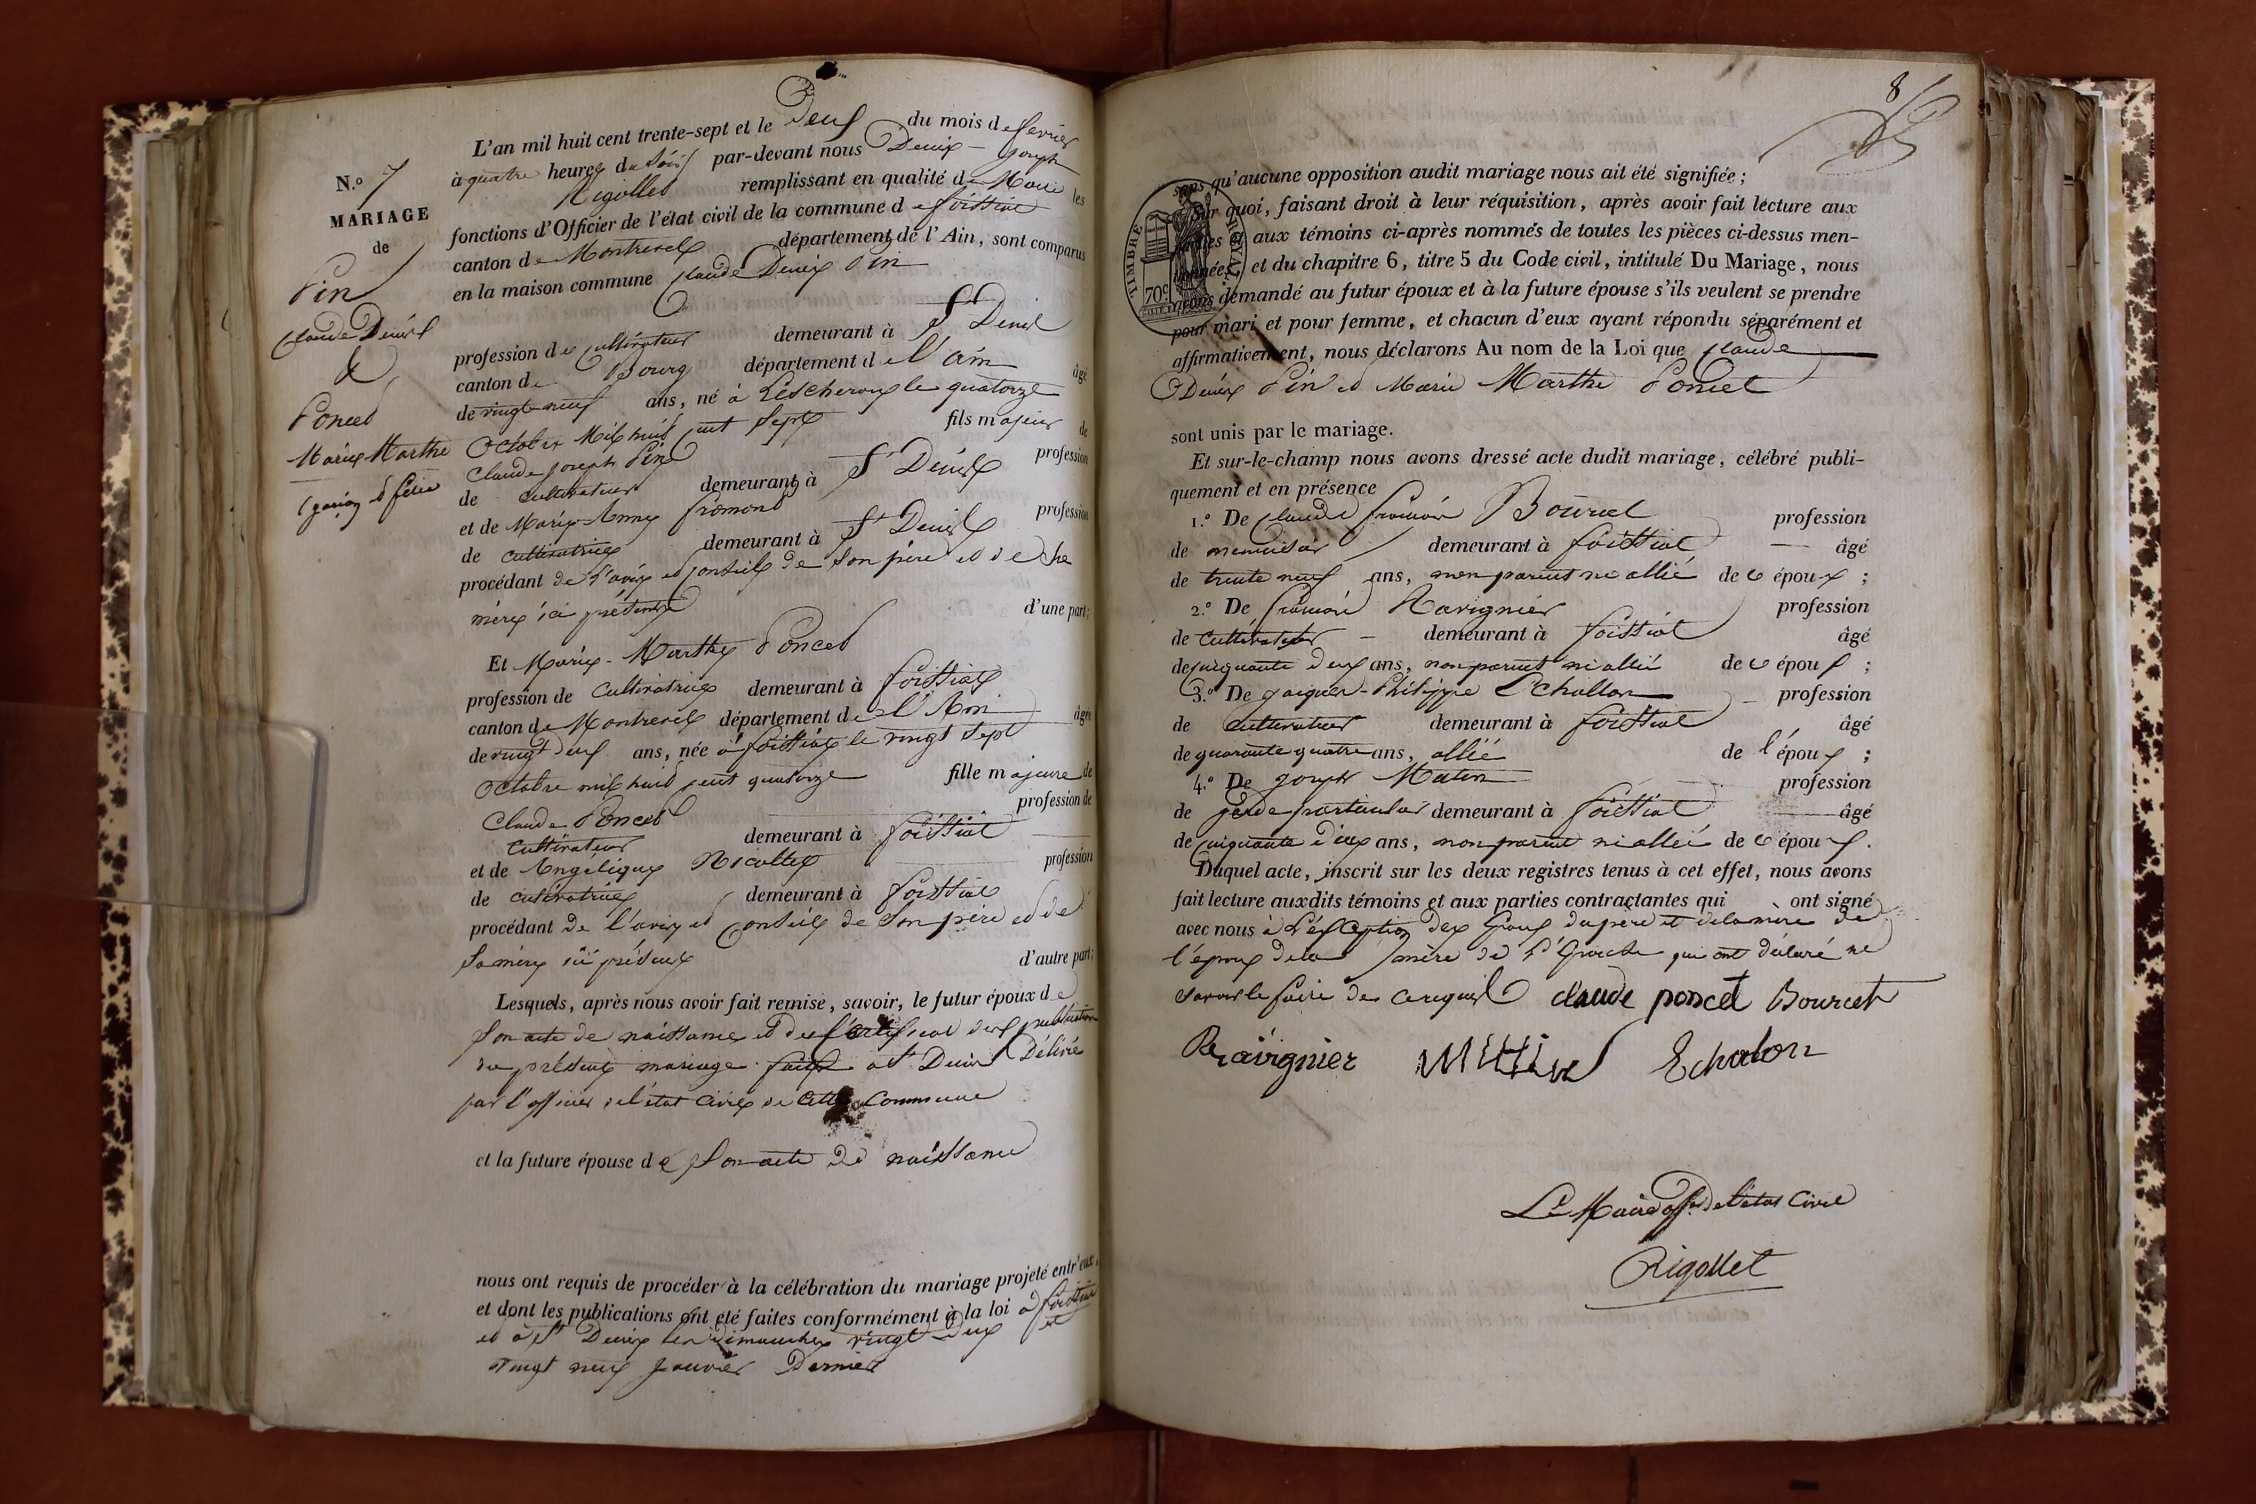 N.o 7
MARIAGE
de
Pin
Claude Denis
&
Poncet
Marie Marthe
L'an mil huit cent trente-sept et le Deux du mois de fevrier
à quatre heures du soir par-devant nous Denis - Joseph
Rigollet remplissant en qualité de Maire les
fonctions d'Officier de l'état civil de la commune de foissiat
canton de Montrevel département de l'Ain, sont comparus
en la maison commune Claude Denis Pin
profession de cultivateur demeurant à St Denis
canton de Bourg département de l'ain âgé
de vingt neuf ans, né à Lescheroux le quatorze
Octobre Mil huit cent sept fils majeur de
Claude Joseph Pin profession
de cultivateur demeurant à St Denis
et de Marie-Anne fromont profession
de cultivatrice demeurant à St Denis
procédant de l'avis et conseil de son père et de sa
mère ici présents d'une part;
Et Marie-Marthe Poncet
profession de Cultivatrice demeurant à foissiat
canton de Montrevel département de l'Ain âgée
de vingt deux ans, née à foissiat le vingt sept
Octobre mil huit cent quatorze fille majeure de
Claude Poncet profession de
cultivateur demeurant à foissiat
et de Angélique Nicollet profession
de cultivatrice demeurant à foissiat
procédant de l'avis et conseil de son père et de
sa mère ici présents d'autre part;
Lesquels, après nous avoir fait remise, savoir, le futur époux de
son acte de naissance et du certificat des publications
du présent mariage faites à St Denis Délivré
par l'officier de l'état civil de cette commune
et la future épouse de son acte de naissance
nous ont requis de procéder à la célébration du mariage projeté entr'eux,
et dont les publications ont été faites conformément à la loi à foissiat
et à St Denis les dimanches vingt deux et
vingt neuf janvier Dernier
8
TIMBRE ROYAL
70c
sans qu'aucune opposition audit mariage nous ait été signifiée;
Sur quoi, faisant droit à leur réquisition, après avoir fait lecture aux
parties et aux témoins ci-après nommés de toutes les pièces ci-dessus men-
tionnées, et du chapitre 6, titre 5 du Code civil, intitulé Du Mariage, nous
avons demandé au futur époux et à la future épouse s'ils veulent se prendre
pour mari et pour femme, et chacun d'eux ayant répondu séparément et
affirmativement, nous déclarons Au nom de la Loi que Claude
Denis Pin et Marie Marthe Poncet
sont unis par le mariage.
Et sur-le-champ nous avons dressé acte dudit mariage, célébré publi-
quement et en présence
1.o De Claude francois Bourcet profession
de menuisier demeurant à foissiat âgé
de trente neuf ans, non parent ni allié des époux;
2.o De francois Ravignier profession
de cultivateur demeurant à foissiat âgé
de cinquante deux ans, non parent ni allié des époux;
3.o De Jacques-Philippe Echallon profession
de cultivateur demeurant à foissiat âgé
de quarante quatre ans, allié de l'époux;
4.o De Joseph profession
de garde particulier demeurant à foissiat âgé
de cinquante deux ans, non parent ni allié des époux.
Duquel acte, inscrit sur les deux registres tenus à cet effet, nous avons
fait lecture auxdits témoins et aux parties contractantes qui ont signé
avec nous à l'exception des époux du père et de la mère de
l'époux de la mère de l'épouse qui ont déclaré ne
savoir le faire de ce requis claude poncet Bourcet
Ravignier Echalon
Le Maire off. de l'état Civil
Rigollet